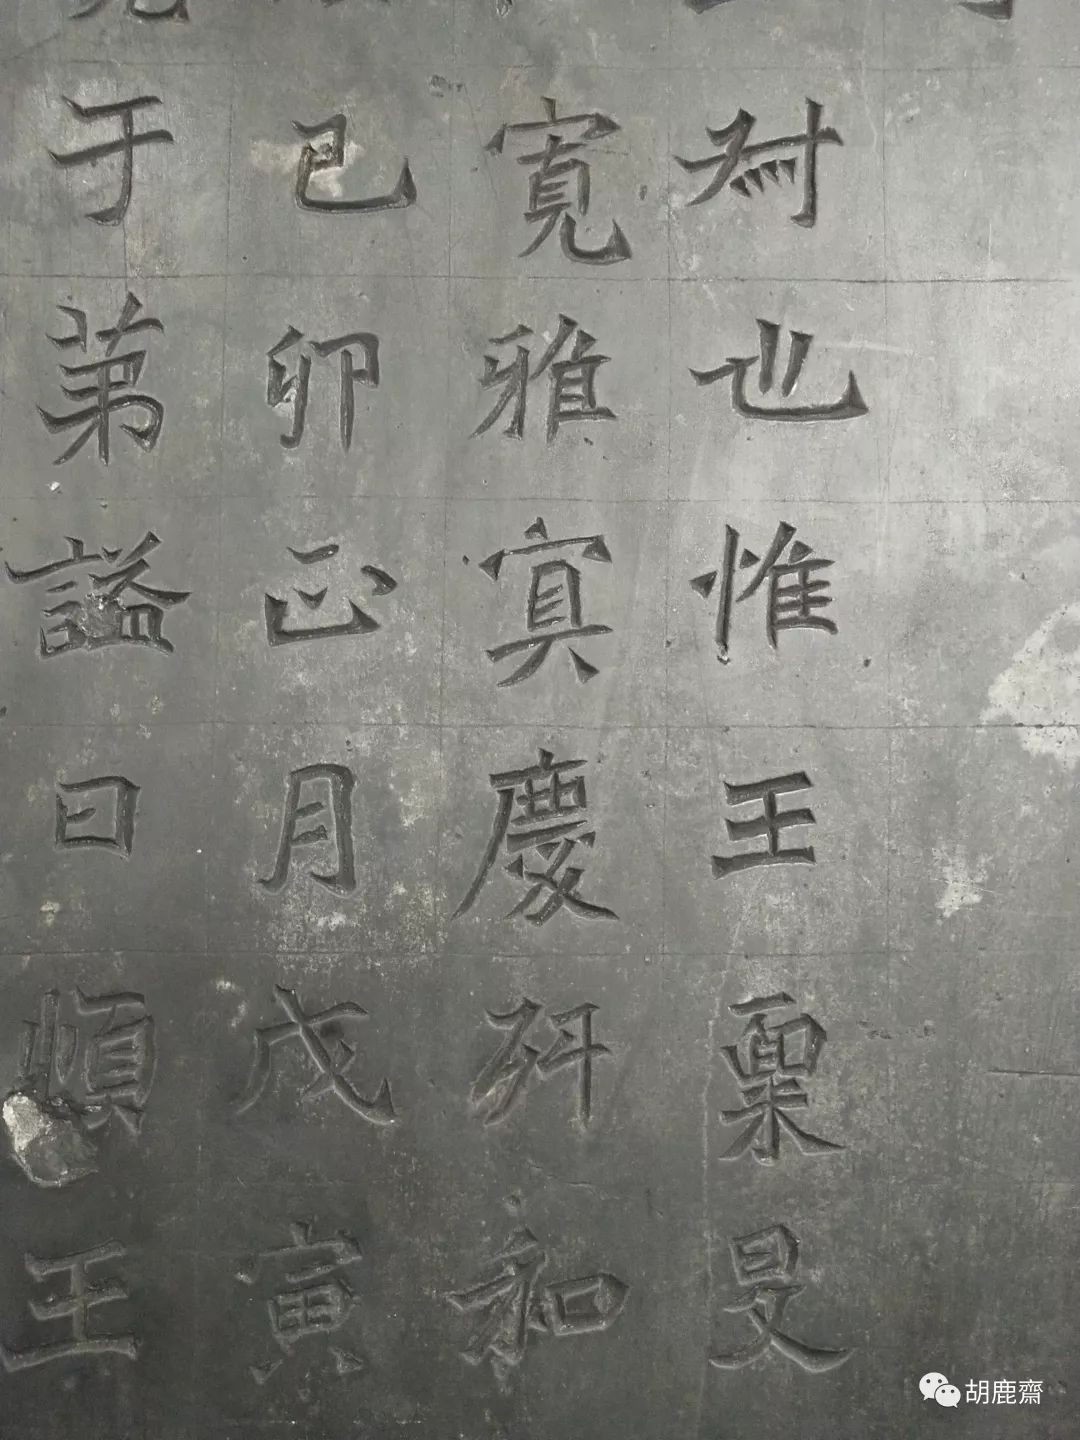 為也惟王稟旻
寬雅寘慶䂨和
已卯正月戊寅
于第謚曰頃王
胡鹿齋